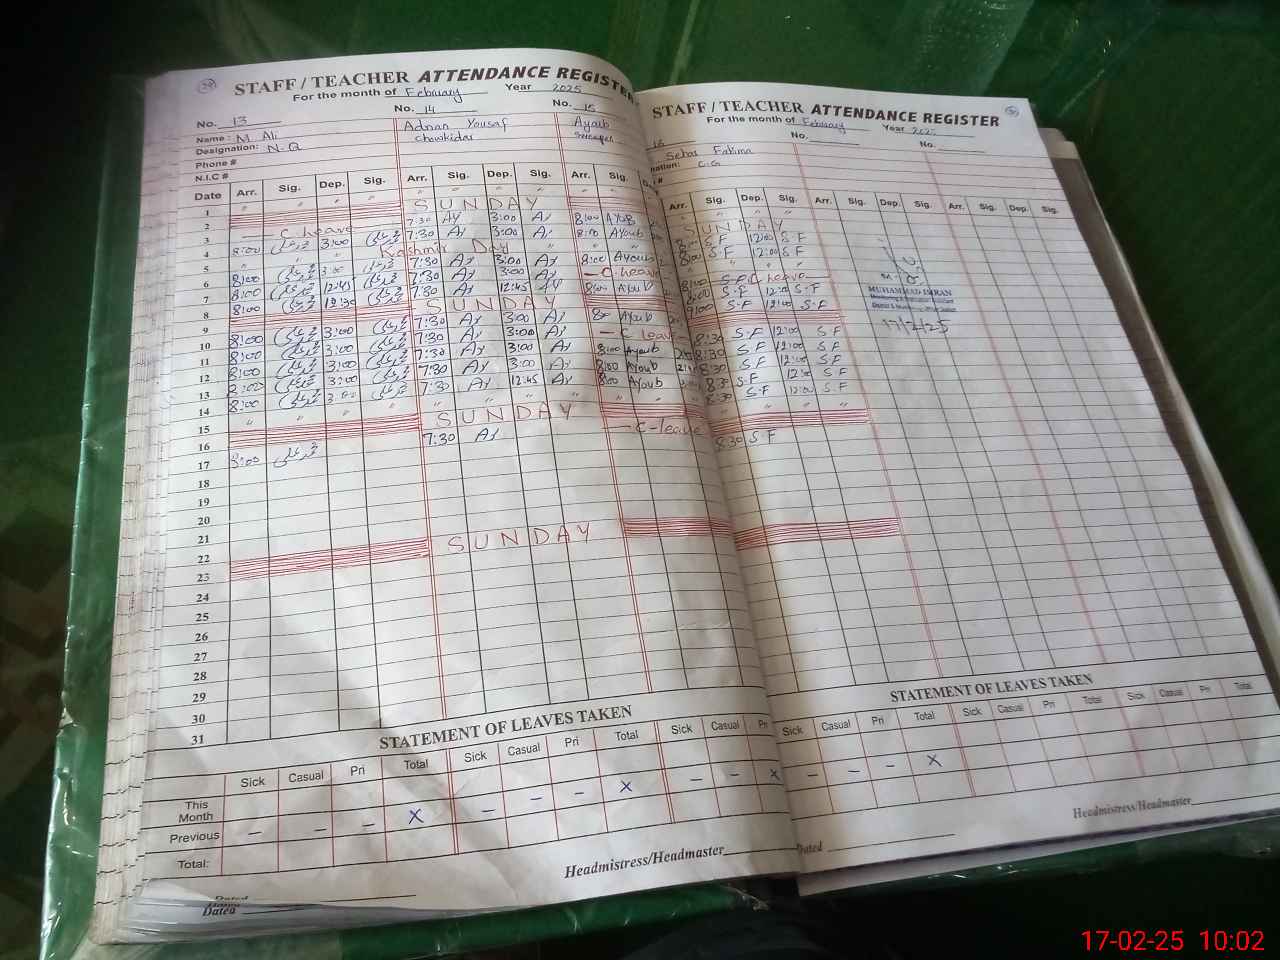 29
STAFF / TEACHER ATTENDANCE REGISTER
For the month of February Year 2025
No. 13 No. 14 No. 15
Name: M. Ali Adnan Yousaf Ayoub
Designation: N.Q Chowkidar Sweeper
Phone #
N.I.C #
Date Arr. Sig. Dep. Sig. Arr. Sig. Dep. Sig. Arr. Sig.
1 " " " " " " " "
2 SUNDAY
3 C. leave 7:30 AY 3:00 AY 8:00 Ayub
4 8:00 محمد علی 3:00 محمد علی 7:30 AY 3:00 AY 8:00 Ayoub
5 Kashmir Day
6 8:00 محمد علی 3:00 محمد علی 7:30 AY 3:00 AY 8:00 Ayoub
7 8:00 محمد علی 12:45 محمد علی 7:30 AY 3:00 AY C. leave
8 8:00 محمد علی 12:30 محمد علی 7:30 AY 12:45 AY 8:00 Ayoub
9 SUNDAY
10 8:00 محمد علی 3:00 محمد علی 7:30 AY 3:00 AY Ayoub
11 8:00 محمد علی 3:00 محمد علی 7:30 AY 3:00 AY C leave
12 8:00 محمد علی 3:00 محمد علی 7:30 AY 3:00 AY 8:00 Ayoub
13 8:00 محمد علی 3:00 محمد علی 7:30 AY 3:00 AY 8:00 Ayoub
14 8:00 محمد علی 3:00 محمد علی 7:30 AY 12:45 AY 8:00 Ayoub
15 " " " " " " " "
16 SUNDAY
17 8:00 محمد علی 7:30 AY C-leave
18
19
20
21
22
23 SUNDAY
24
25
26
27
28
29
30
31
STATEMENT OF LEAVES TAKEN
Sick Casual Pri Total Sick Casual Pri Total Sick Casual Pri
This Month
Previous – – – X – – – X – – X
Total:
Headmistress/Headmaster
Dated
Dated
STAFF / TEACHER ATTENDANCE REGISTER
For the month of February Year 2025
16 No. No.
Sehar Fatima
C.G
Arr. Sig. Dep. Sig. Arr. Sig. Dep. Sig. Arr. Sig. Dep. Sig.
" " " "
SUNDAY
8:00 S.F 12:00 S.F
8:00 S.F 12:00 S.F
" " " "
8:00 S.F C. leave
8:00 S.F 12:00 S.F
9:00 S.F 12:00 S.F
8:30 S.F 12:00 S.F
8:30 S.F 12:00 S.F
8:30 S.F 12:00 S.F
8:30 S.F 12:00 S.F
8:30 S.F 12:00 S.F
" " " "
8:30 S.F
MUHAMMAD IMRAN
17/2/25
STATEMENT OF LEAVES TAKEN
Sick Casual Pri Total Sick Casual Pri Total Sick Casual Pri Total
– – – X
Headmistress/Headmaster
Dated
17-02-25 10:02